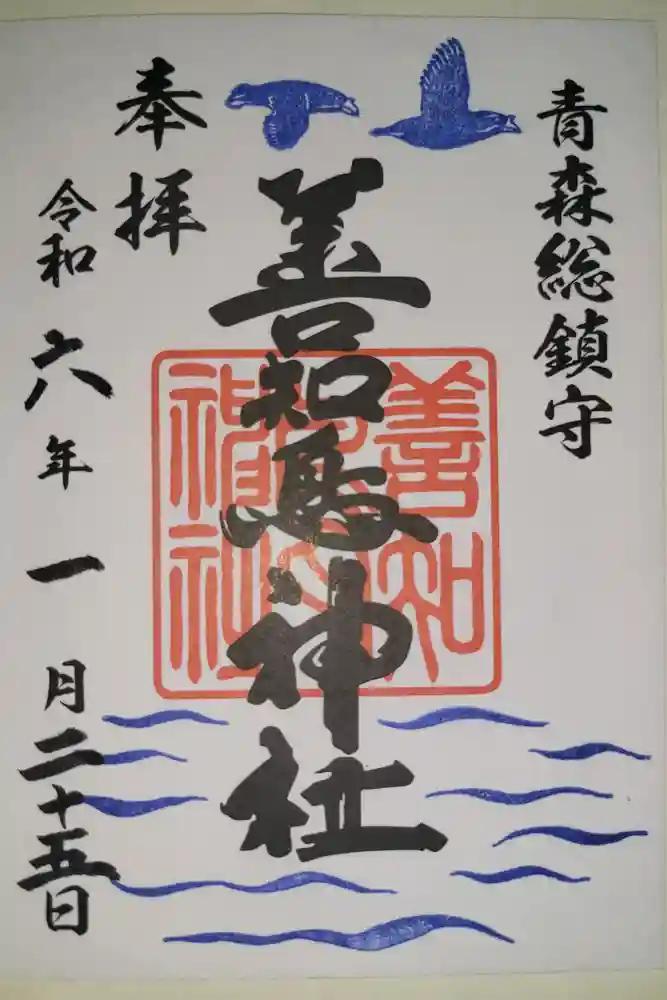 青森総鎮守
善知鳥神社
善知
鳥
神社
奉拝
令和六年一月二十五日